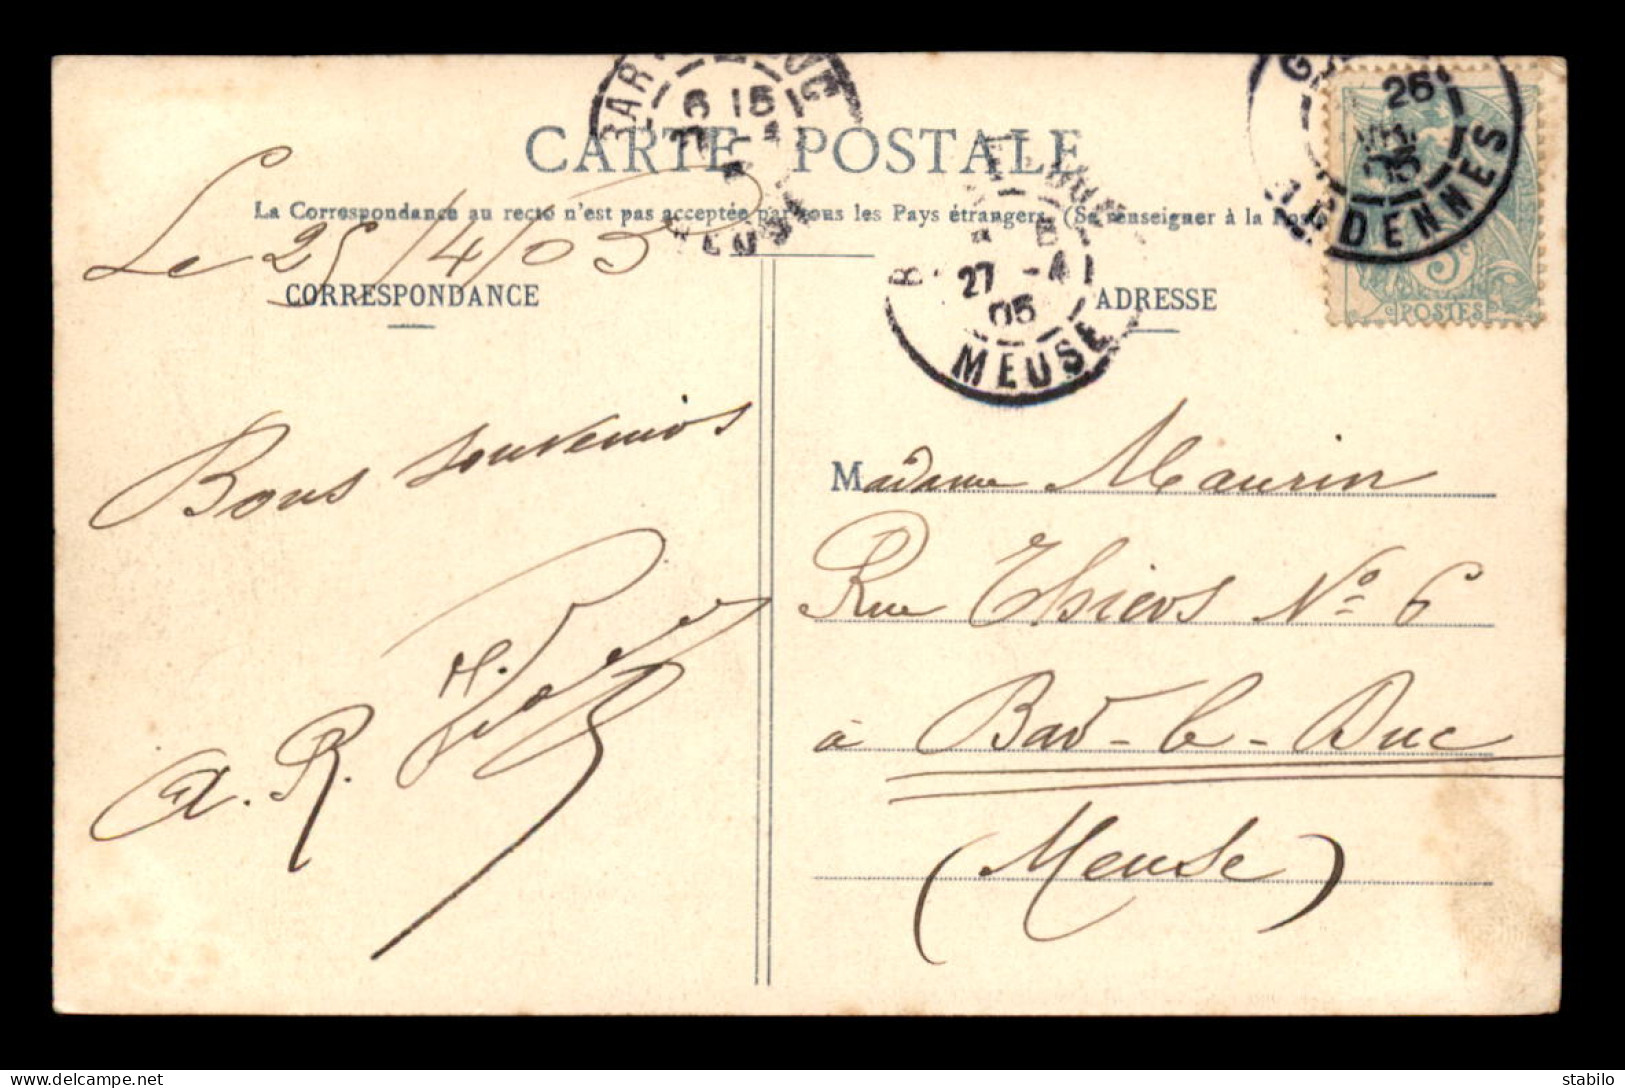 CARTE POSTALE
La Correspondance au recto n'est pas acceptée par tous les Pays étrangers. (Se renseigner à la Pos
Le 25/4/05
CORRESPONDANCE
Bons souvenirs
A. R.
BAR DUC
6 15
MEUSE
27 -4
05
MEUSE
ADRESSE
26
05
ARDENNES
5c
POSTES
Madame Maurin
Rue Thiers No 6
à Bar-le-Duc
(Meuse)
stabilo